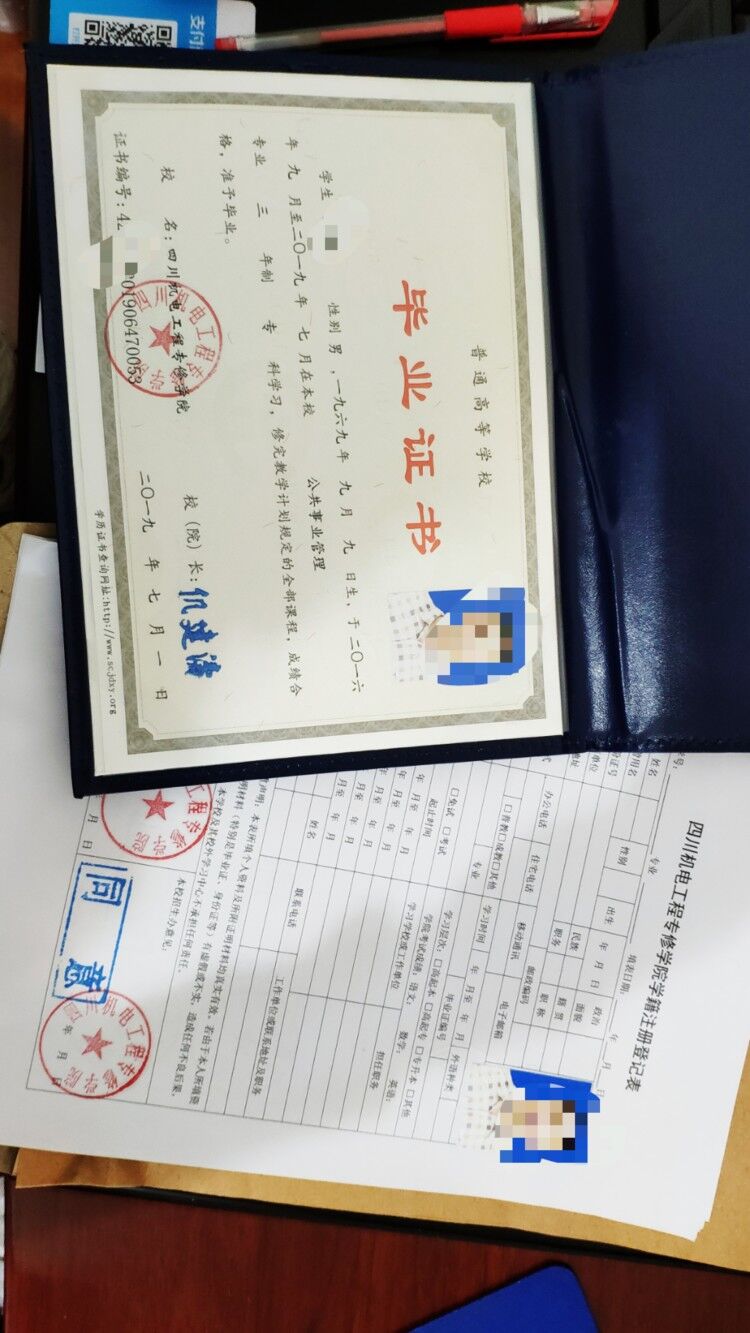 支付
普通高等学校
毕业证书
学生 性别 男 ，一九六九年 九 月 九 日生，于 二〇一六
年 九 月至二〇一九年 七 月在本校 公共事业管理
专业 三 年制 专 科学习，修完教学计划规定的全部课程，成绩合
格，准予毕业。
校 名：四川机电工程专修学院 校（院）长：
证书编号：42 201906470053 二〇一九 年 七 月 一 日
学历证书查询网址:http://www.scjdxy.org
四川机电工程专修学院学籍注册登记表
填表日期： 年 月 日
姓名 性别 出生 年 月 日 政治面貌
曾用名 专业 民族 籍贯
单位 职务 职称
邮政编码
办公电话 住宅电话 移动通讯 电子邮箱
□普教□成教□其他 专业 学习时间 年 月至 年 月 外语种类
学习层次：□高起本 □高起专 □专升本 □其他
毕业证编号
□免试 □考试 学院考试成绩：语文： 数学： 英语：
起止时间 学习学校或工作单位 担任职务
年 月至 年 月
年 月至 年 月
年 月至 年 月
姓名 联系电话 工作单位或联系地址及职务
声明：本表所填个人资料及所附证明材料均真实有效，若由于本人所填资
明材料（特别是毕业证、身份证等）有虚假或不实，造成任何不良后果，
本学校及其校外学习中心不承担任何责任。
本校招生办意见：
同意
年 月 日
月 日
四川机电工程专修学院